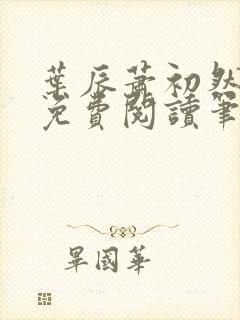 葉辰蕭初然
免費閱讀筆
畢國華